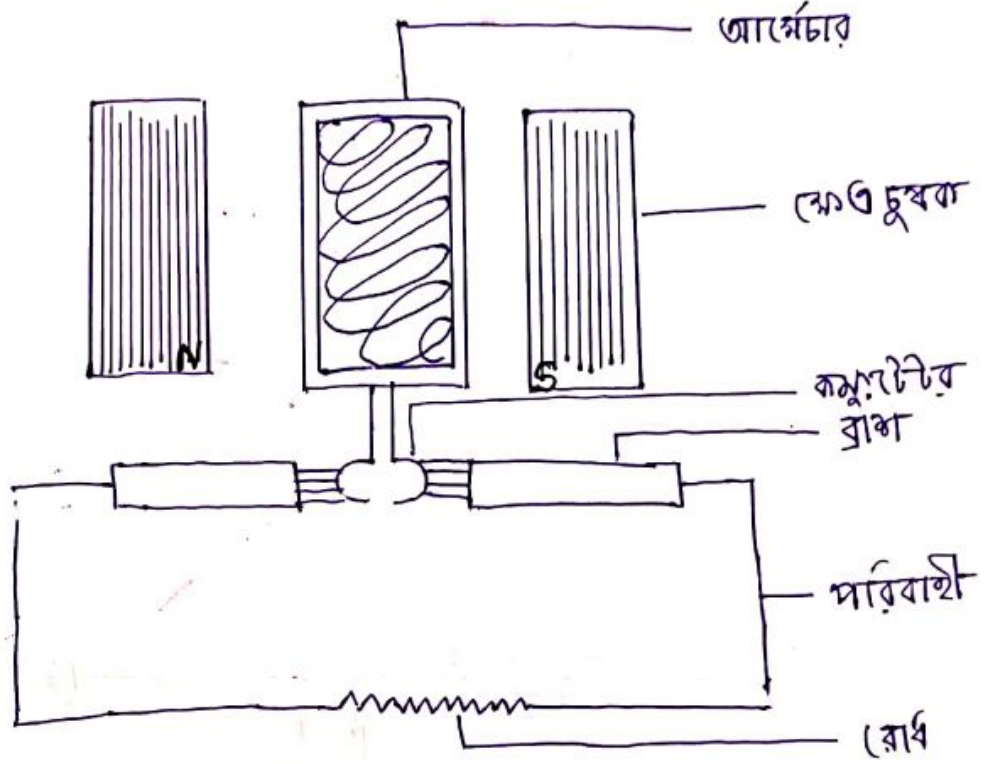 আর্মেচার
ক্ষেত্র চুম্বক
N
S
কম্যুটেটর
ব্রাশ
পরিবাহী
রোধ